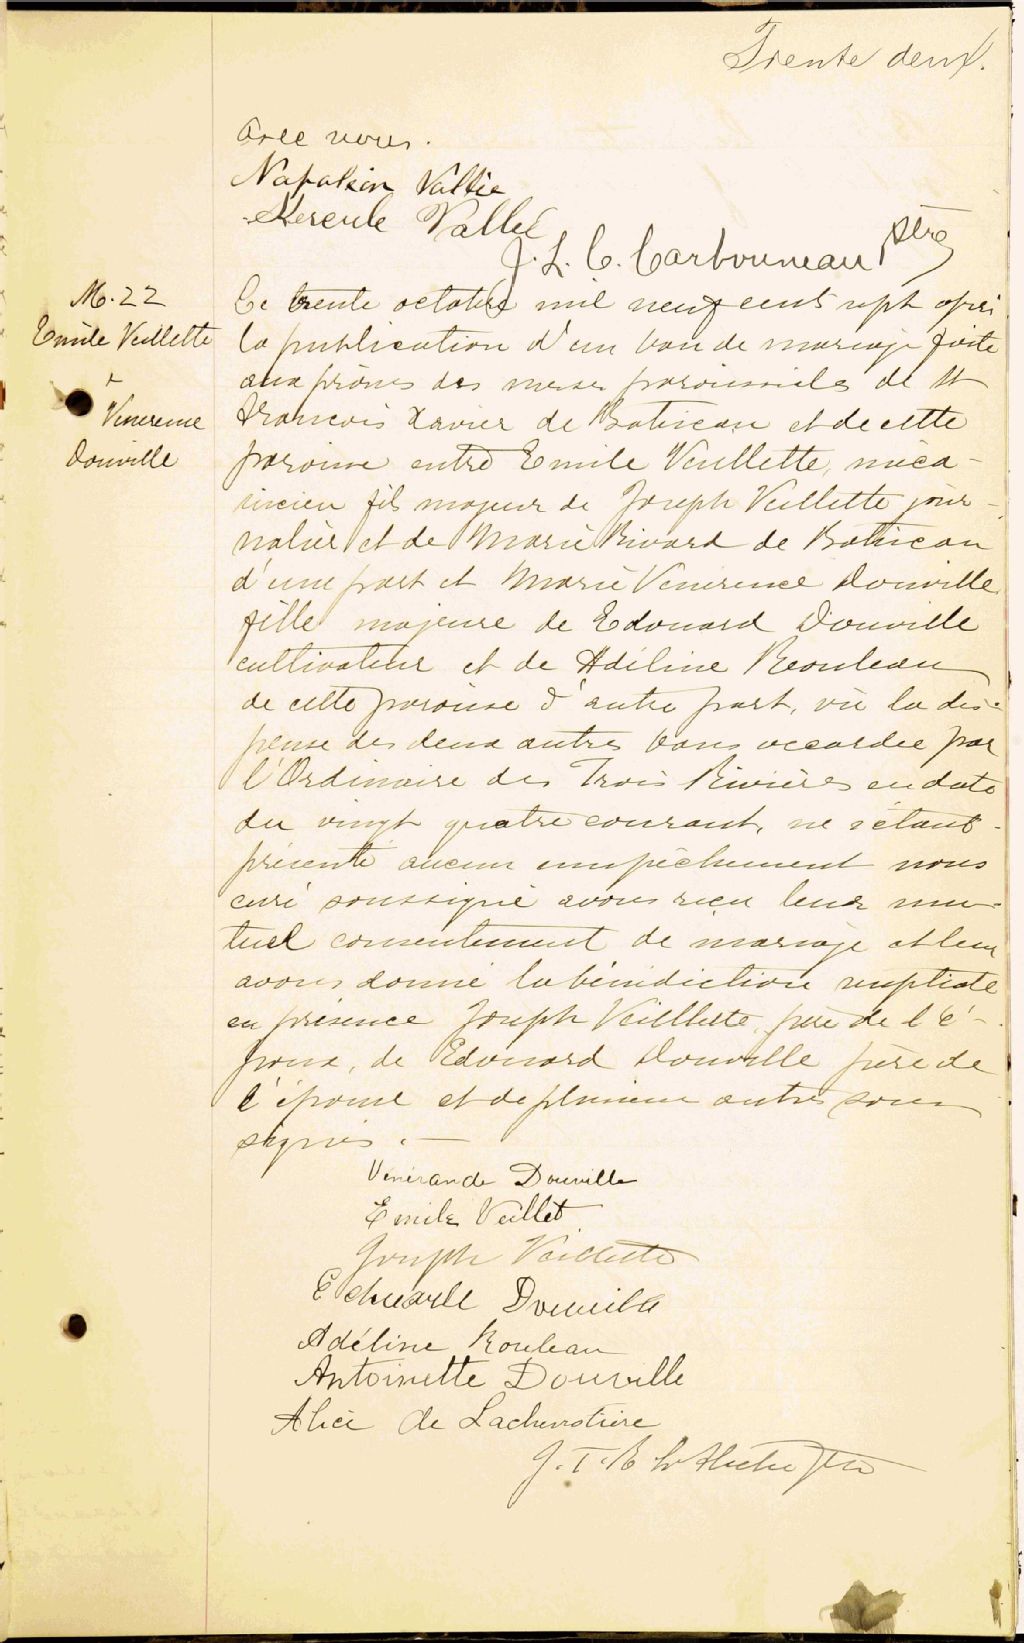 Trente deux.
avec nous.
Napoléon Vallée
Hercule Vallée
J. L. C. Carbonneau Ptre
M. 22
Emile Veillette
&
Vénérence
Douville
Ce trente octobre mil neuf cent sept après
la publication d'un ban de mariage faite
aux prônes des messes paroissiales de St
François Xavier de Batiscan et de cette
paroisse entre Emile Veillette, méca-
nicien fils majeur de Joseph Veillette jour-
nalier et de Marie Rivard de Batiscan
d'une part et Marie Vénérence Douville
fille majeure de Edouard Douville
cultivateur et de Adéline Rouleau
de cette paroisse d'autre part, vu la dis-
pense des deux autres bans accordée par
l'Ordinaire des Trois Rivières en date
du vingt quatre courant, ne s'étant
présenté aucun empêchement nous
curé soussigné avons reçu leur mu-
tuel consentement de mariage et leur
avons donné la bénédiction nuptiale
en présence Joseph Veillette, père de l'é-
poux, de Edouard Douville père de
l'épouse et de plusieurs autres sous
signés. —
Vénérande Douville
Emile Veillet
Joseph Veillette
Edouard Douville
Adéline Rouleau
Antoinette Douville
Alice de Lachevrotière
J. T. E.